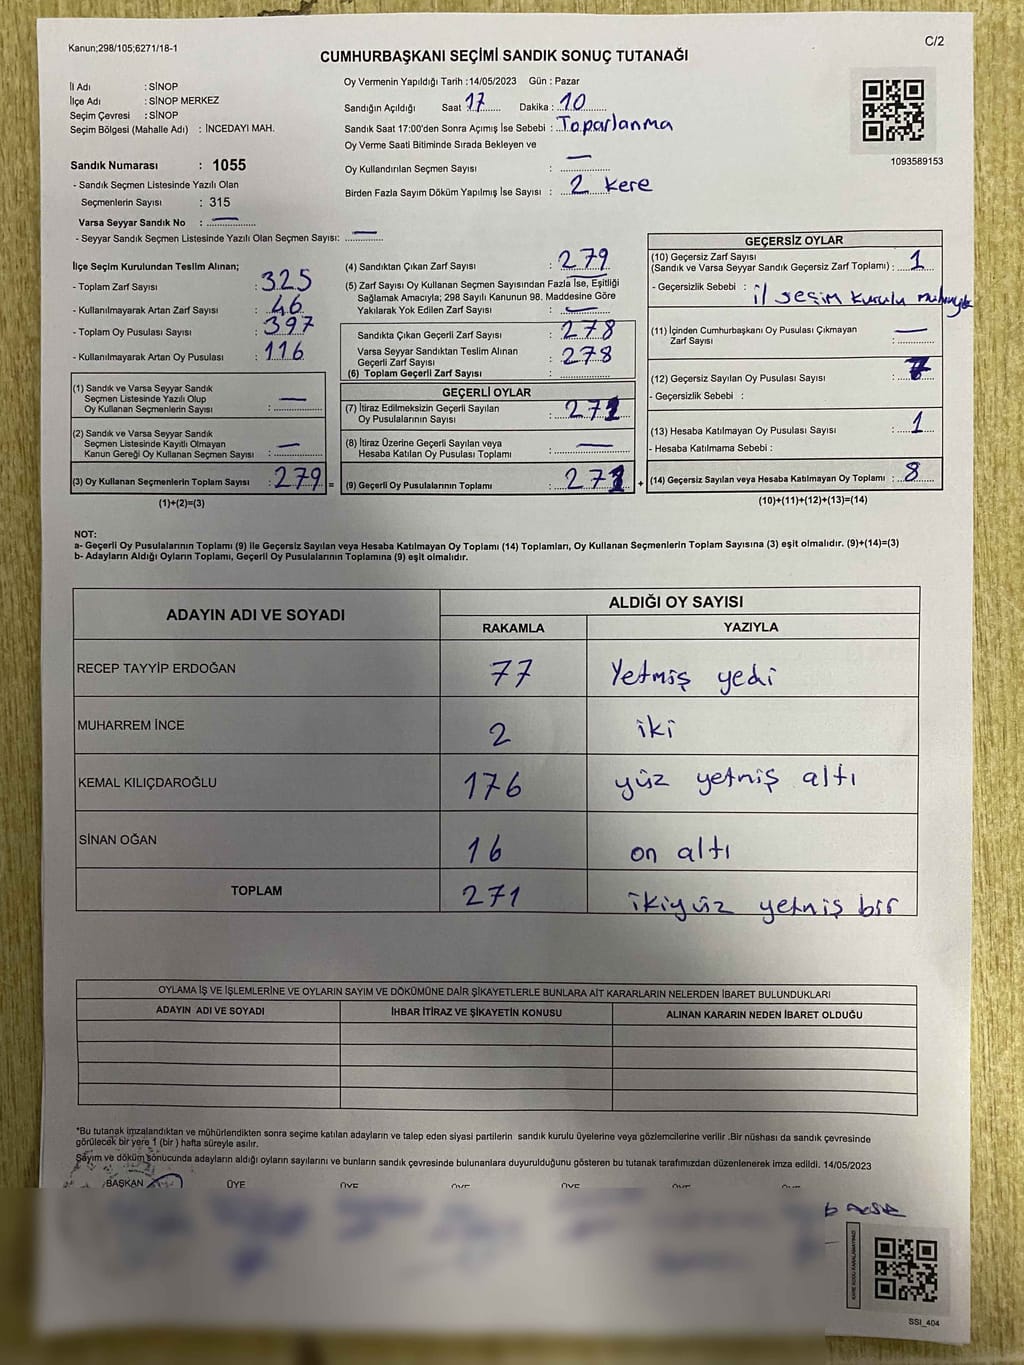 Kanun;298/105;6271/18-1
C/2
CUMHURBAŞKANI SEÇİMİ SANDIK SONUÇ TUTANAĞI
İl Adı : SİNOP
İlçe Adı : SİNOP MERKEZ
Seçim Çevresi : SİNOP
Seçim Bölgesi (Mahalle Adı) : İNCEDAYI MAH.
Sandık Numarası : 1055
- Sandık Seçmen Listesinde Yazılı Olan
Seçmenlerin Sayısı : 315
Varsa Seyyar Sandık No : —
- Seyyar Sandık Seçmen Listesinde Yazılı Olan Seçmen Sayısı: —
Oy Vermenin Yapıldığı Tarih :14/05/2023 Gün : Pazar
Sandığın Açıldığı Saat 17 Dakika : 10
Sandık Saat 17:00'den Sonra Açımış İse Sebebi : Toparlanma
Oy Verme Saati Bitiminde Sırada Bekleyen ve
Oy Kullandırılan Seçmen Sayısı : —
Birden Fazla Sayım Döküm Yapılmış İse Sayısı : 2 kere
1093589153
İlçe Seçim Kurulundan Teslim Alınan;
- Toplam Zarf Sayısı : 325
- Kullanılmayarak Artan Zarf Sayısı : 46
- Toplam Oy Pusulası Sayısı : 397
- Kullanılmayarak Artan Oy Pusulası : 116
(1) Sandık ve Varsa Seyyar Sandık
Seçmen Listesinde Yazılı Olup
Oy Kullanan Seçmenlerin Sayısı : —
(2) Sandık ve Varsa Seyyar Sandık
Seçmen Listesinde Kayıtlı Olmayan
Kanun Gereği Oy Kullanan Seçmen Sayısı : —
(3) Oy Kullanan Seçmenlerin Toplam Sayısı : 279 =
(1)+(2)=(3)
(4) Sandıktan Çıkan Zarf Sayısı : 279
(5) Zarf Sayısı Oy Kullanan Seçmen Sayısından Fazla İse, Eşitliği
Sağlamak Amacıyla; 298 Sayılı Kanunun 98. Maddesine Göre
Yakılarak Yok Edilen Zarf Sayısı : —
Sandıkta Çıkan Geçerli Zarf Sayısı : 278
Varsa Seyyar Sandıktan Teslim Alınan
Geçerli Zarf Sayısı : 278
(6) Toplam Geçerli Zarf Sayısı :
GEÇERLİ OYLAR
(7) İtiraz Edilmeksizin Geçerli Sayılan
Oy Pusulalarının Sayısı : 271
(8) İtiraz Üzerine Geçerli Sayılan veya
Hesaba Katılan Oy Pusulası Toplamı : —
(9) Geçerli Oy Pusulalarının Toplamı : 271 +
GEÇERSİZ OYLAR
(10) Geçersiz Zarf Sayısı
(Sandık ve Varsa Seyyar Sandık Geçersiz Zarf Toplamı) : 1
- Geçersizlik Sebebi : il seçim kurulu
(11) İçinden Cumhurbaşkanı Oy Pusulası Çıkmayan
Zarf Sayısı : —
(12) Geçersiz Sayılan Oy Pusulası Sayısı :
- Geçersizlik Sebebi :
(13) Hesaba Katılmayan Oy Pusulası Sayısı : 1
- Hesaba Katılmama Sebebi :
(14) Geçersiz Sayılan veya Hesaba Katılmayan Oy Toplamı : 8
(10)+(11)+(12)+(13)=(14)
NOT:
a- Geçerli Oy Pusulalarının Toplamı (9) ile Geçersiz Sayılan veya Hesaba Katılmayan Oy Toplamı (14) Toplamları, Oy Kullanan Seçmenlerin Toplam Sayısına (3) eşit olmalıdır. (9)+(14)=(3)
b- Adayların Aldığı Oyların Toplamı, Geçerli Oy Pusulalarının Toplamına (9) eşit olmalıdır.
ADAYIN ADI VE SOYADI ALDIĞI OY SAYISI
RAKAMLA YAZIYLA
RECEP TAYYİP ERDOĞAN 77 Yetmiş yedi
MUHARREM İNCE 2 iki
KEMAL KILIÇDAROĞLU 176 yüz yetmiş altı
SİNAN OĞAN 16 on altı
TOPLAM 271 ikiyüz yetmiş bir
OYLAMA İŞ VE İŞLEMLERİNE VE OYLARIN SAYIM VE DÖKÜMÜNE DAİR ŞİKAYETLERLE BUNLARA AİT KARARLARIN NELERDEN İBARET BULUNDUKLARI
ADAYIN ADI VE SOYADI İHBAR İTİRAZ VE ŞİKAYETİN KONUSU ALINAN KARARIN NEDEN İBARET OLDUĞU
*Bu tutanak imzalandıktan ve mühürlendikten sonra seçime katılan adayların ve talep eden siyasi partilerin sandık kurulu üyelerine veya gözlemcilerine verilir .Bir nüshası da sandık çevresinde
görülecek bir yere 1 (bir ) hafta süreyle asılır.
Sayım ve döküm sonucunda adayların aldığı oyların sayılarını ve bunların sandık çevresinde bulunanlara duyurulduğunu gösteren bu tutanak tarafımızdan düzenlenerek imza edildi. 14/05/2023
BAŞKAN ÜYE ÜYE ÜYE ÜYE ÜYE ÜYE
SSI_404